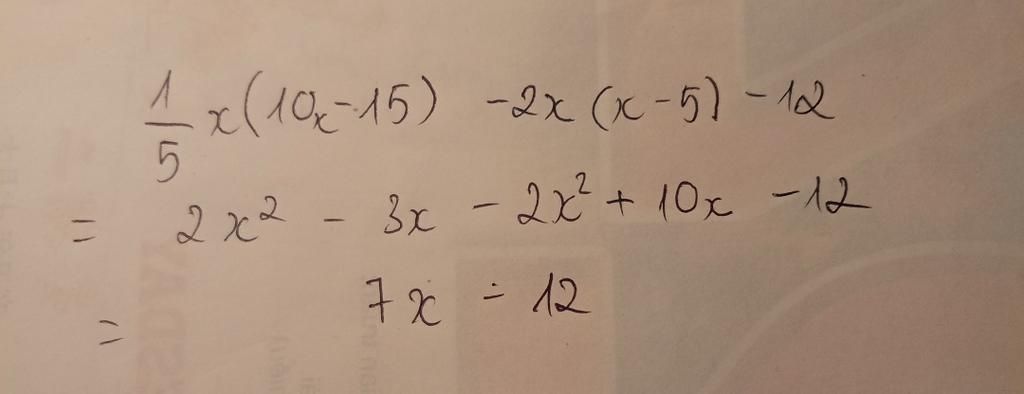 1/5 x(10x-15) -2x(x-5) -12
= 2x² - 3x - 2x² + 10x - 12
= 7x - 12